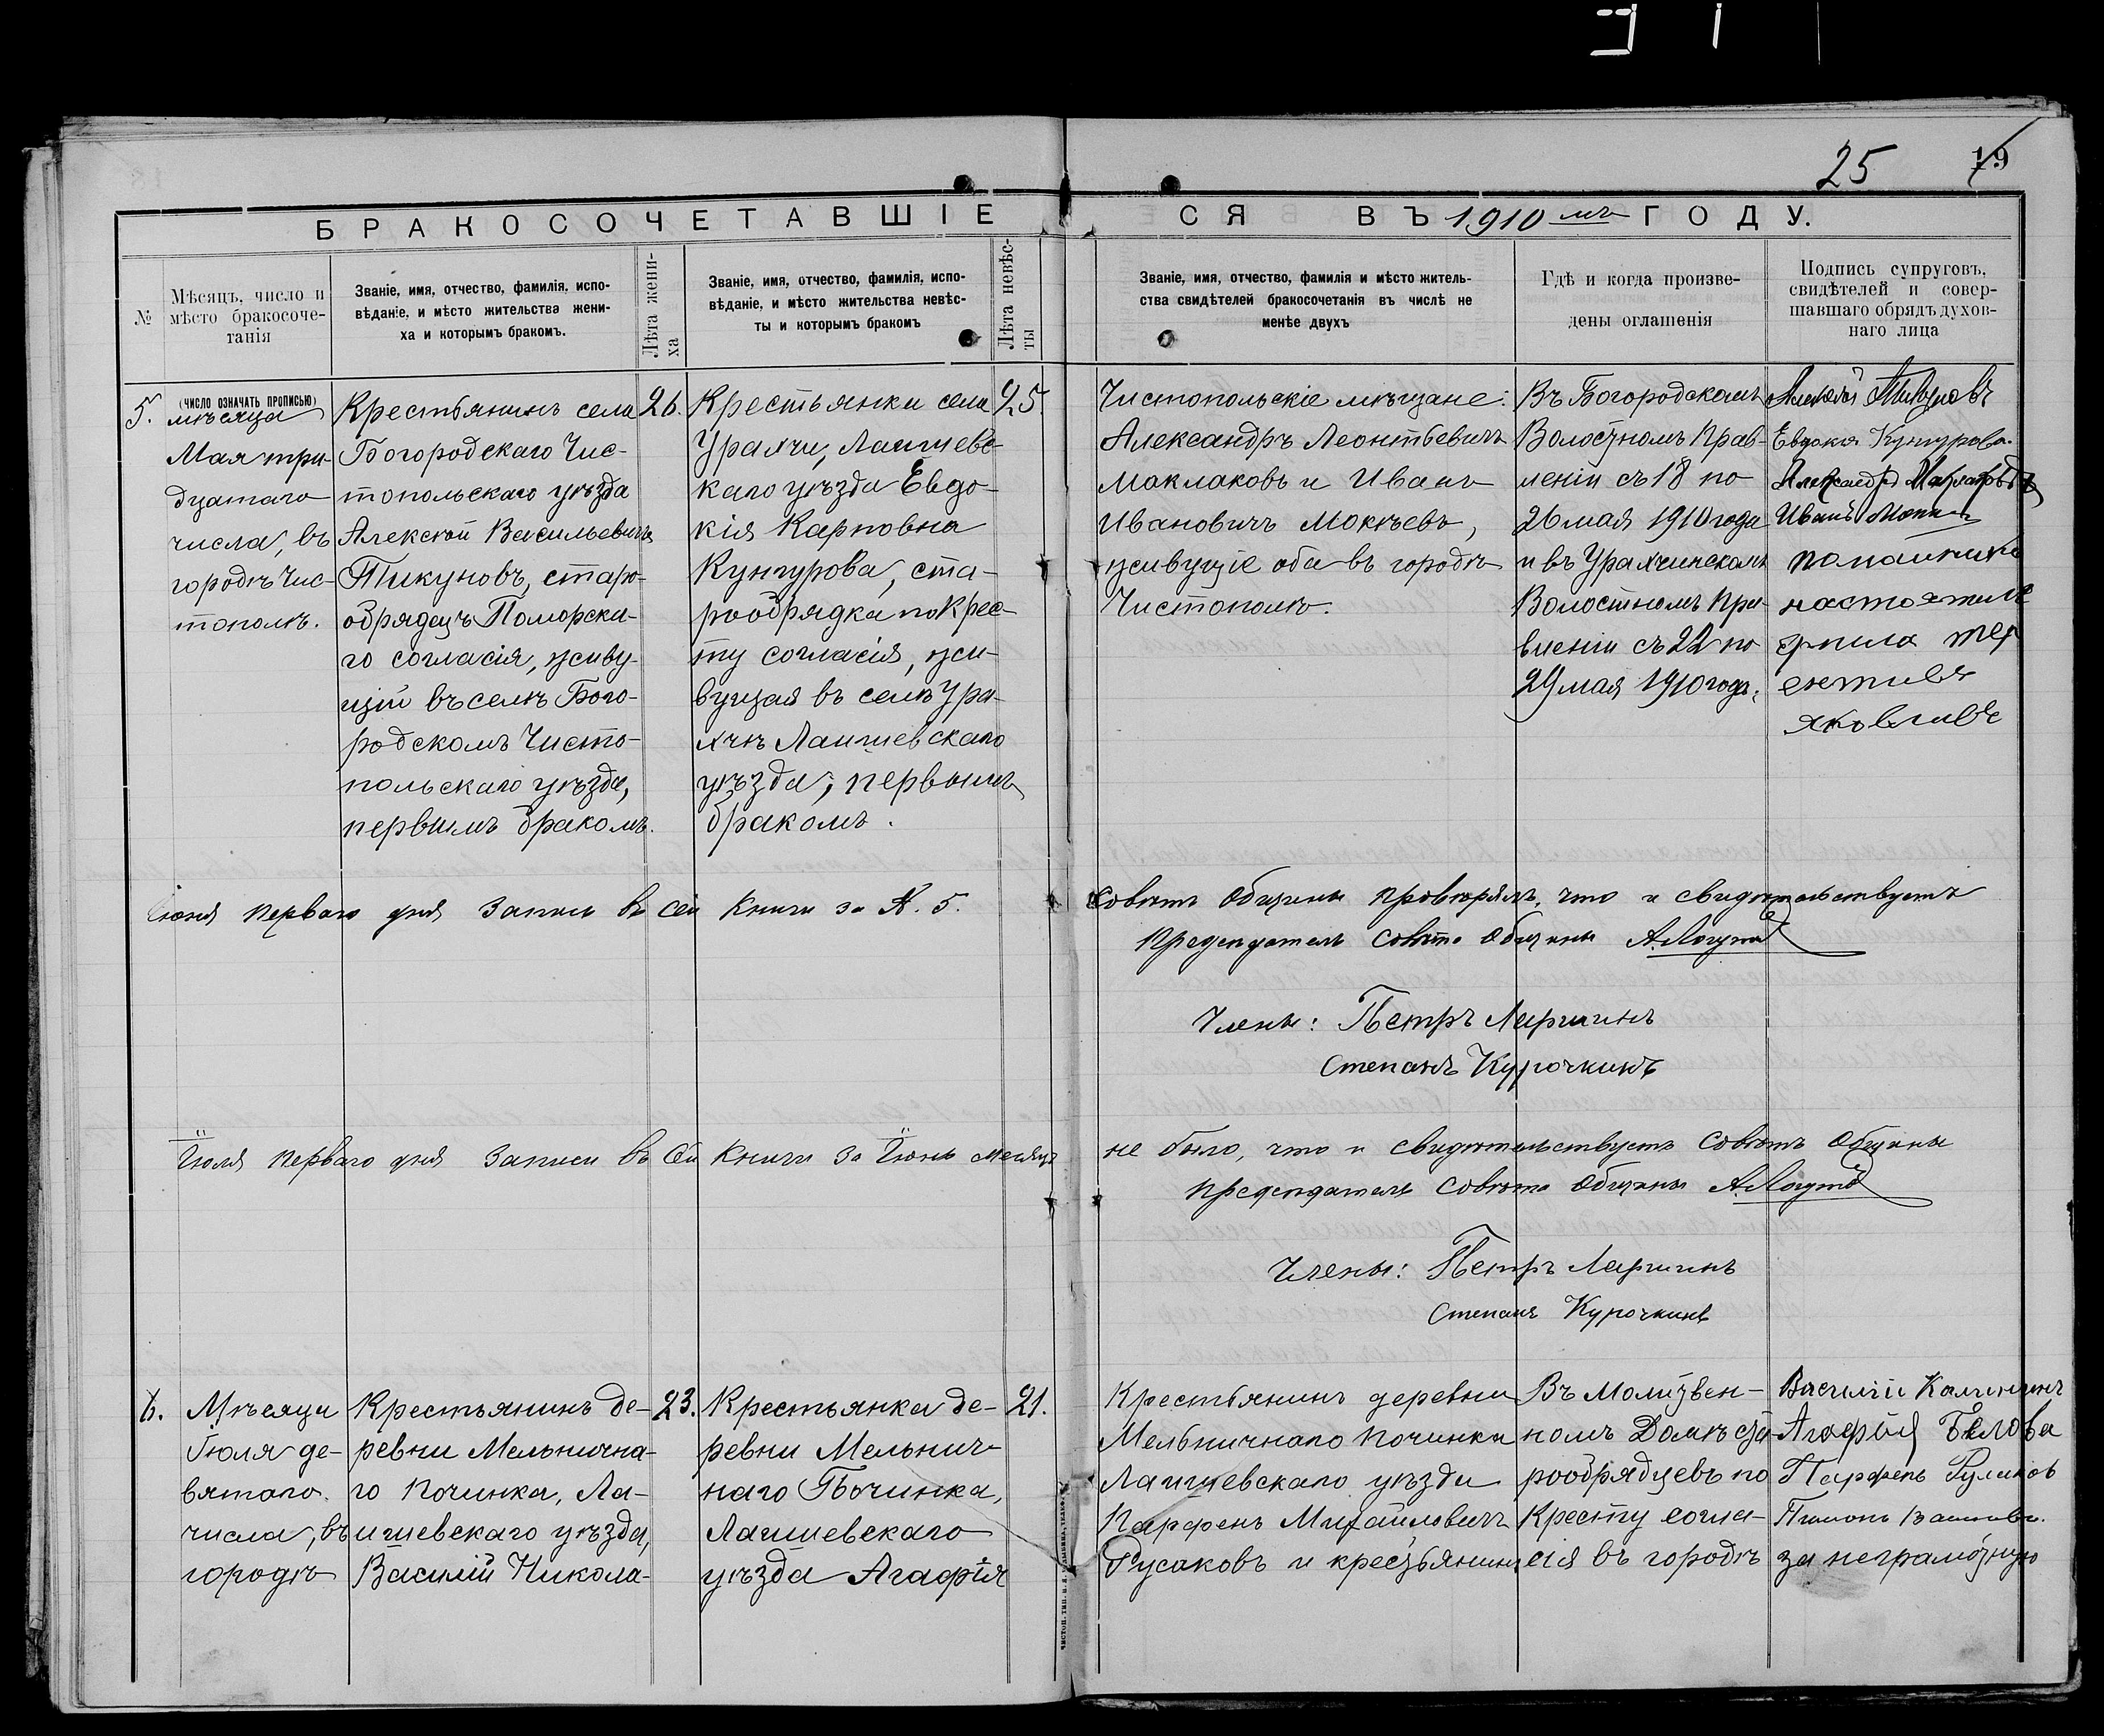 25 19
БРАКОСОЧЕТАВШІЕ
СЯ ВЪ 1910 мъ ГОДУ.
№
Мѣсяцъ, число и
мѣсто бракосоче-
танія
Званіе, имя, отчество, фамилія, испо-
вѣданіе, и мѣсто жительства жени-
ха и которымъ бракомъ.
Лѣта жени-
ха
Званіе, имя, отчество, фамилія, испо-
вѣданіе, и мѣсто жительства невѣс-
ты и которымъ бракомъ
Лѣта невѣс-
ты
Званіе, имя, отчество, фамилія и мѣсто житель-
ства свидѣтелей бракосочетанія въ числѣ не
менѣе двухъ
Гдѣ и когда произве-
дены оглашенія
Подпись супруговъ,
свидѣтелей и совер-
шавшаго обрядъ духов-
наго лица
5.
(ЧИСЛО ОЗНАЧАТЬ ПРОПИСЬЮ)
мѣсяца
Мая три-
дцатаго
числа, въ
городѣ Чис-
тополѣ.
Крестьянинъ села
Богородскаго Чис-
топольскаго уѣзда
Алексѣй Васильевичъ
Тикуновъ, старо-
обрядецъ Поморска-
го согласія, живу-
щій въ селѣ Бого-
родскомъ Чисто-
польскаго уѣзда,
первымъ бракомъ.
26.
Крестьянка села
Урахчи, Лаишевс-
каго уѣзда Евдо-
кія Карповна
Кунгурова, ста-
рообрядка по Крес-
ту согласія, жи-
вущая въ селѣ Ура-
хчѣ Лаишевскаго
уѣзда, первымъ
бракомъ.
25.
Чистопольскіе мѣщане:
Александръ Леонтьевичъ
Маклаковъ и Иванъ
Ивановичъ Мокѣевъ,
живущіе оба въ городѣ
Чистополѣ.
Въ Богородскомъ
Волостномъ Прав-
леніи съ 18 по
26 мая 1910 года
и въ Урахчинскомъ
Волостномъ Пра-
вленіи съ 22 по
29 мая 1910 года.
Алексѣй Тикуновъ
Евдокия Кунгурова.
Александръ Маклаковъ
Иванъ
настоятель
яковливъ
Іюня перваго дня Записи въ сей Книги за №. 5.
Совѣтъ Общины провѣрялъ, что и свидѣтельствуетъ
Предсѣдатель Совѣта Общины
Члены: Петръ Ларичинъ
Степанъ Курочкинъ
Іюля перваго дня Записи въ сей Книги за Іюнь месяцъ
не было, что и свидѣтельствуетъ Совѣтъ Общины
Предсѣдатель Совѣта Общины
Члены: Петръ Ларичинъ
Степанъ Курочкинъ
6.
Мѣсяца
Іюля де-
вятаго
числа, въ
городѣ
Крестьянинъ де-
ревни Мельнична-
го Починка, Ла-
ишевскаго уѣзда,
Василій Никола-
23.
Крестьянка де-
ревни Мельнич-
наго Починка,
Лаишевскаго
уѣзда Агафія
21.
Крестьянинъ деревни
Мельничнаго Починка
Лаишевскаго уѣзда
Парфенъ Михайловичъ
Русаковъ и крестьянинъ
Въ Молитвен-
номъ Домѣ ста-
рообрядцевъ по
Кресту согла-
сія въ городѣ
Василій Калининъ
Агафія Белова
Парфенъ Русаковъ
за неграмотную